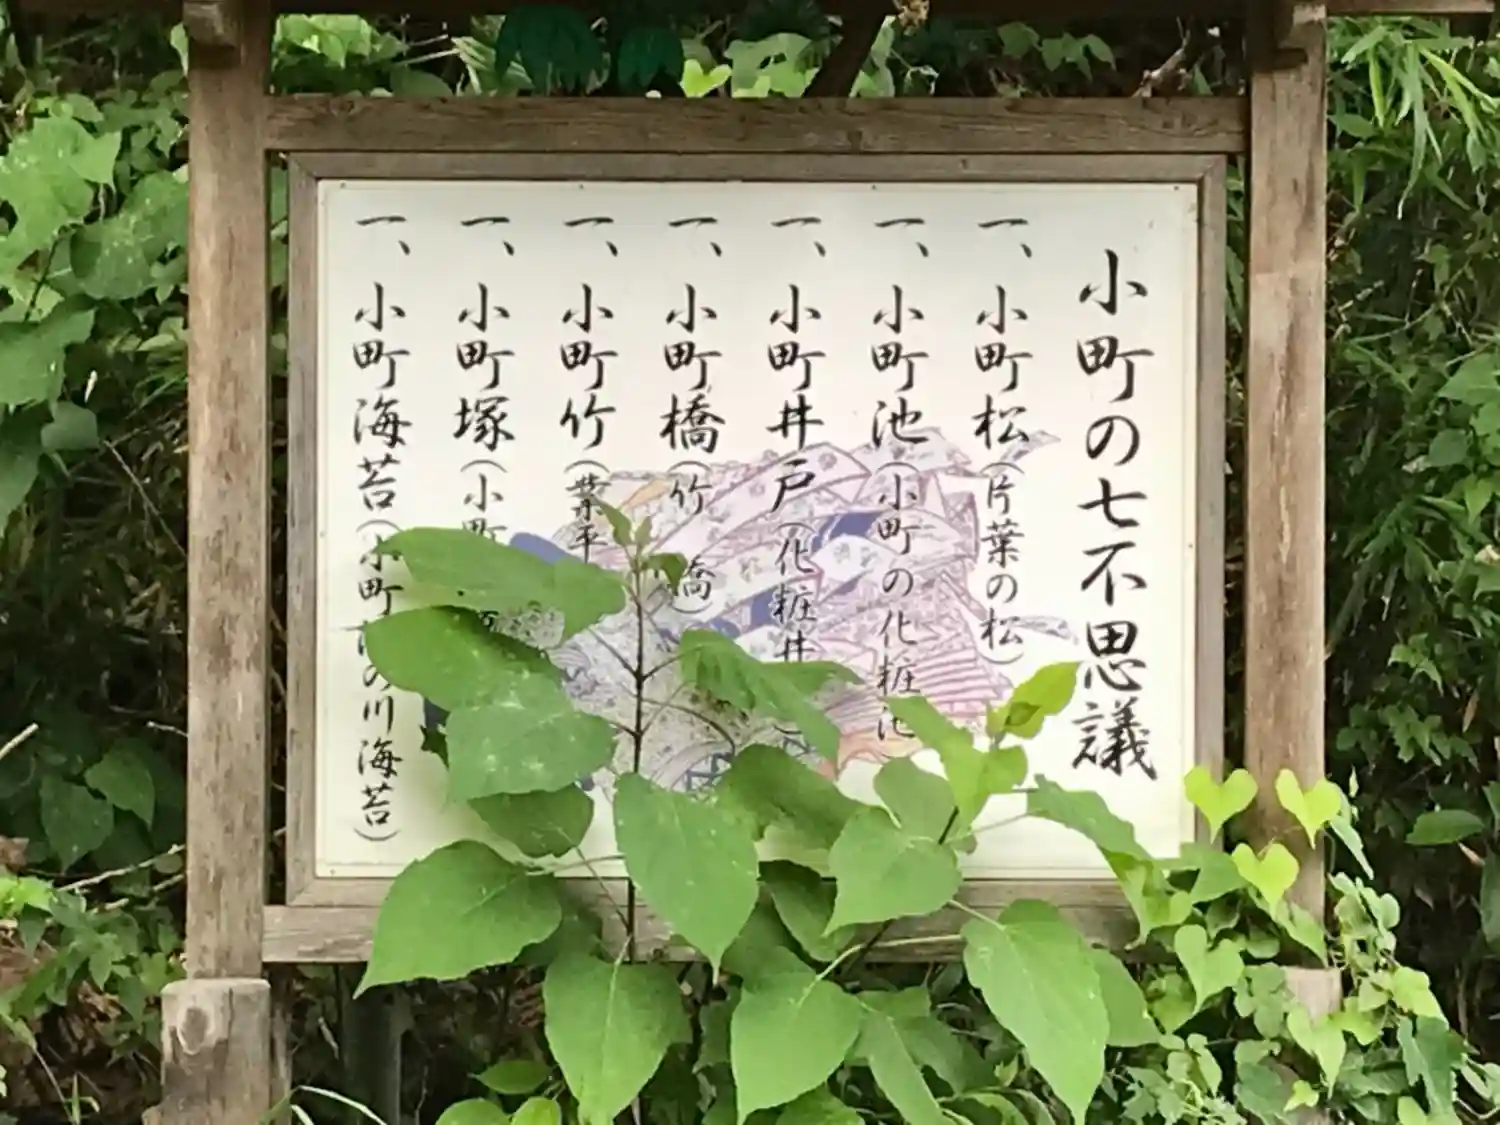 小町の七不思議
一、小町松(片葉の松)
一、小町池(小町の化粧池
一、小町井戸(化粧井
一、小町橋(竹 橋)
一、小町竹(葉平
一、小町塚(小町
一、小町海苔(小町 の川海苔)